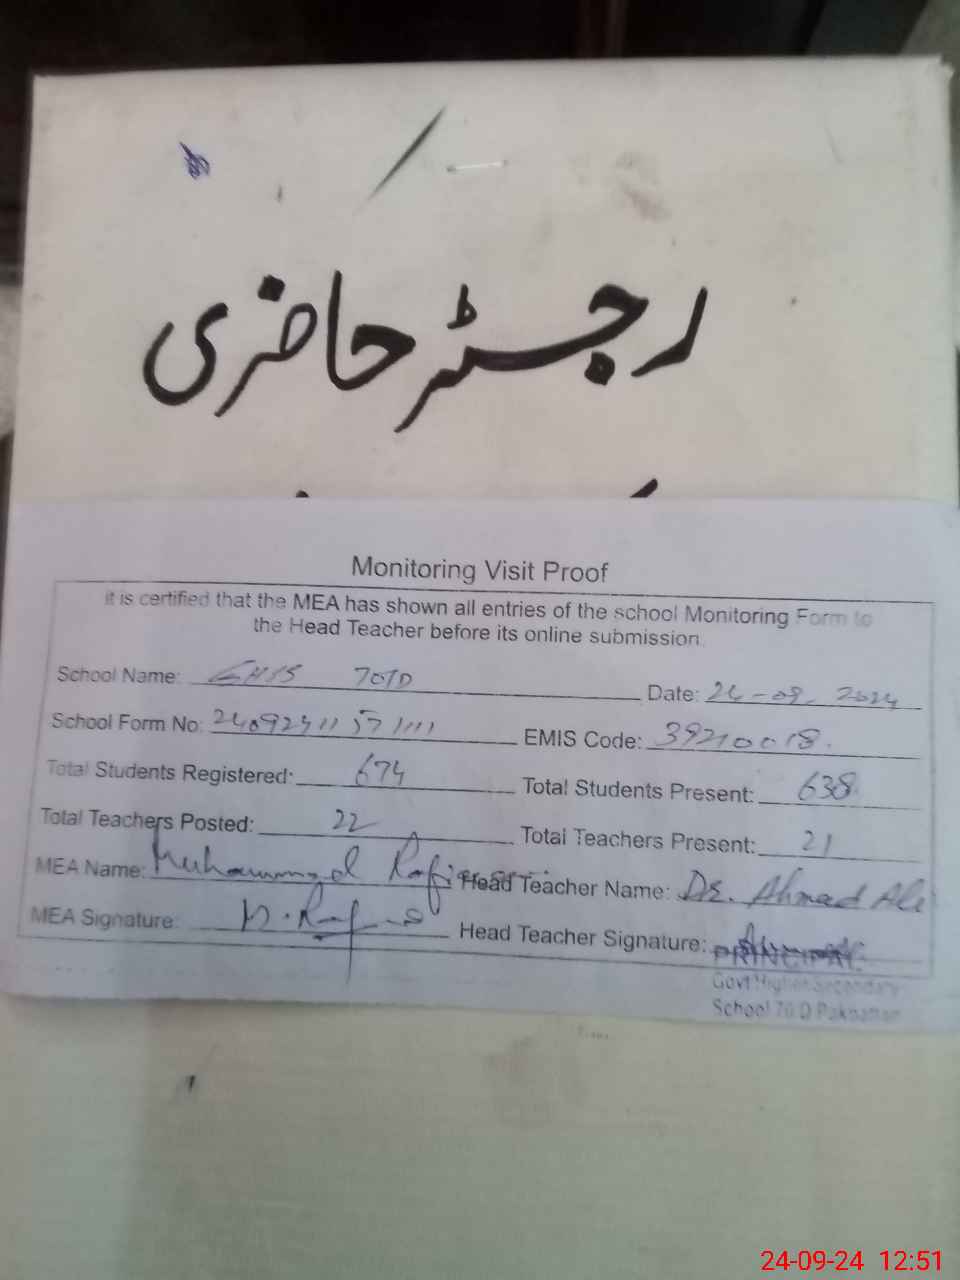 رجسٹر حاضری
Monitoring Visit Proof
it is certified that the MEA has shown all entries of the school Monitoring Form to
the Head Teacher before its online submission.
School Name: GHSS 70/D Date: 24-09-2024
School Form No: EMIS Code: 39210018.
Total Students Registered: 674 Total Students Present: 638
Total Teachers Posted: 22 Total Teachers Present: 21
MEA Name: Muhammad Rafiq Head Teacher Name: Dr. Ahmad Ali
MEA Signature: M. Rafiq Head Teacher Signature:
PRINCIPAL
Govt Higher Secondary
School 70 D Pakpattan
24-09-24 12:51